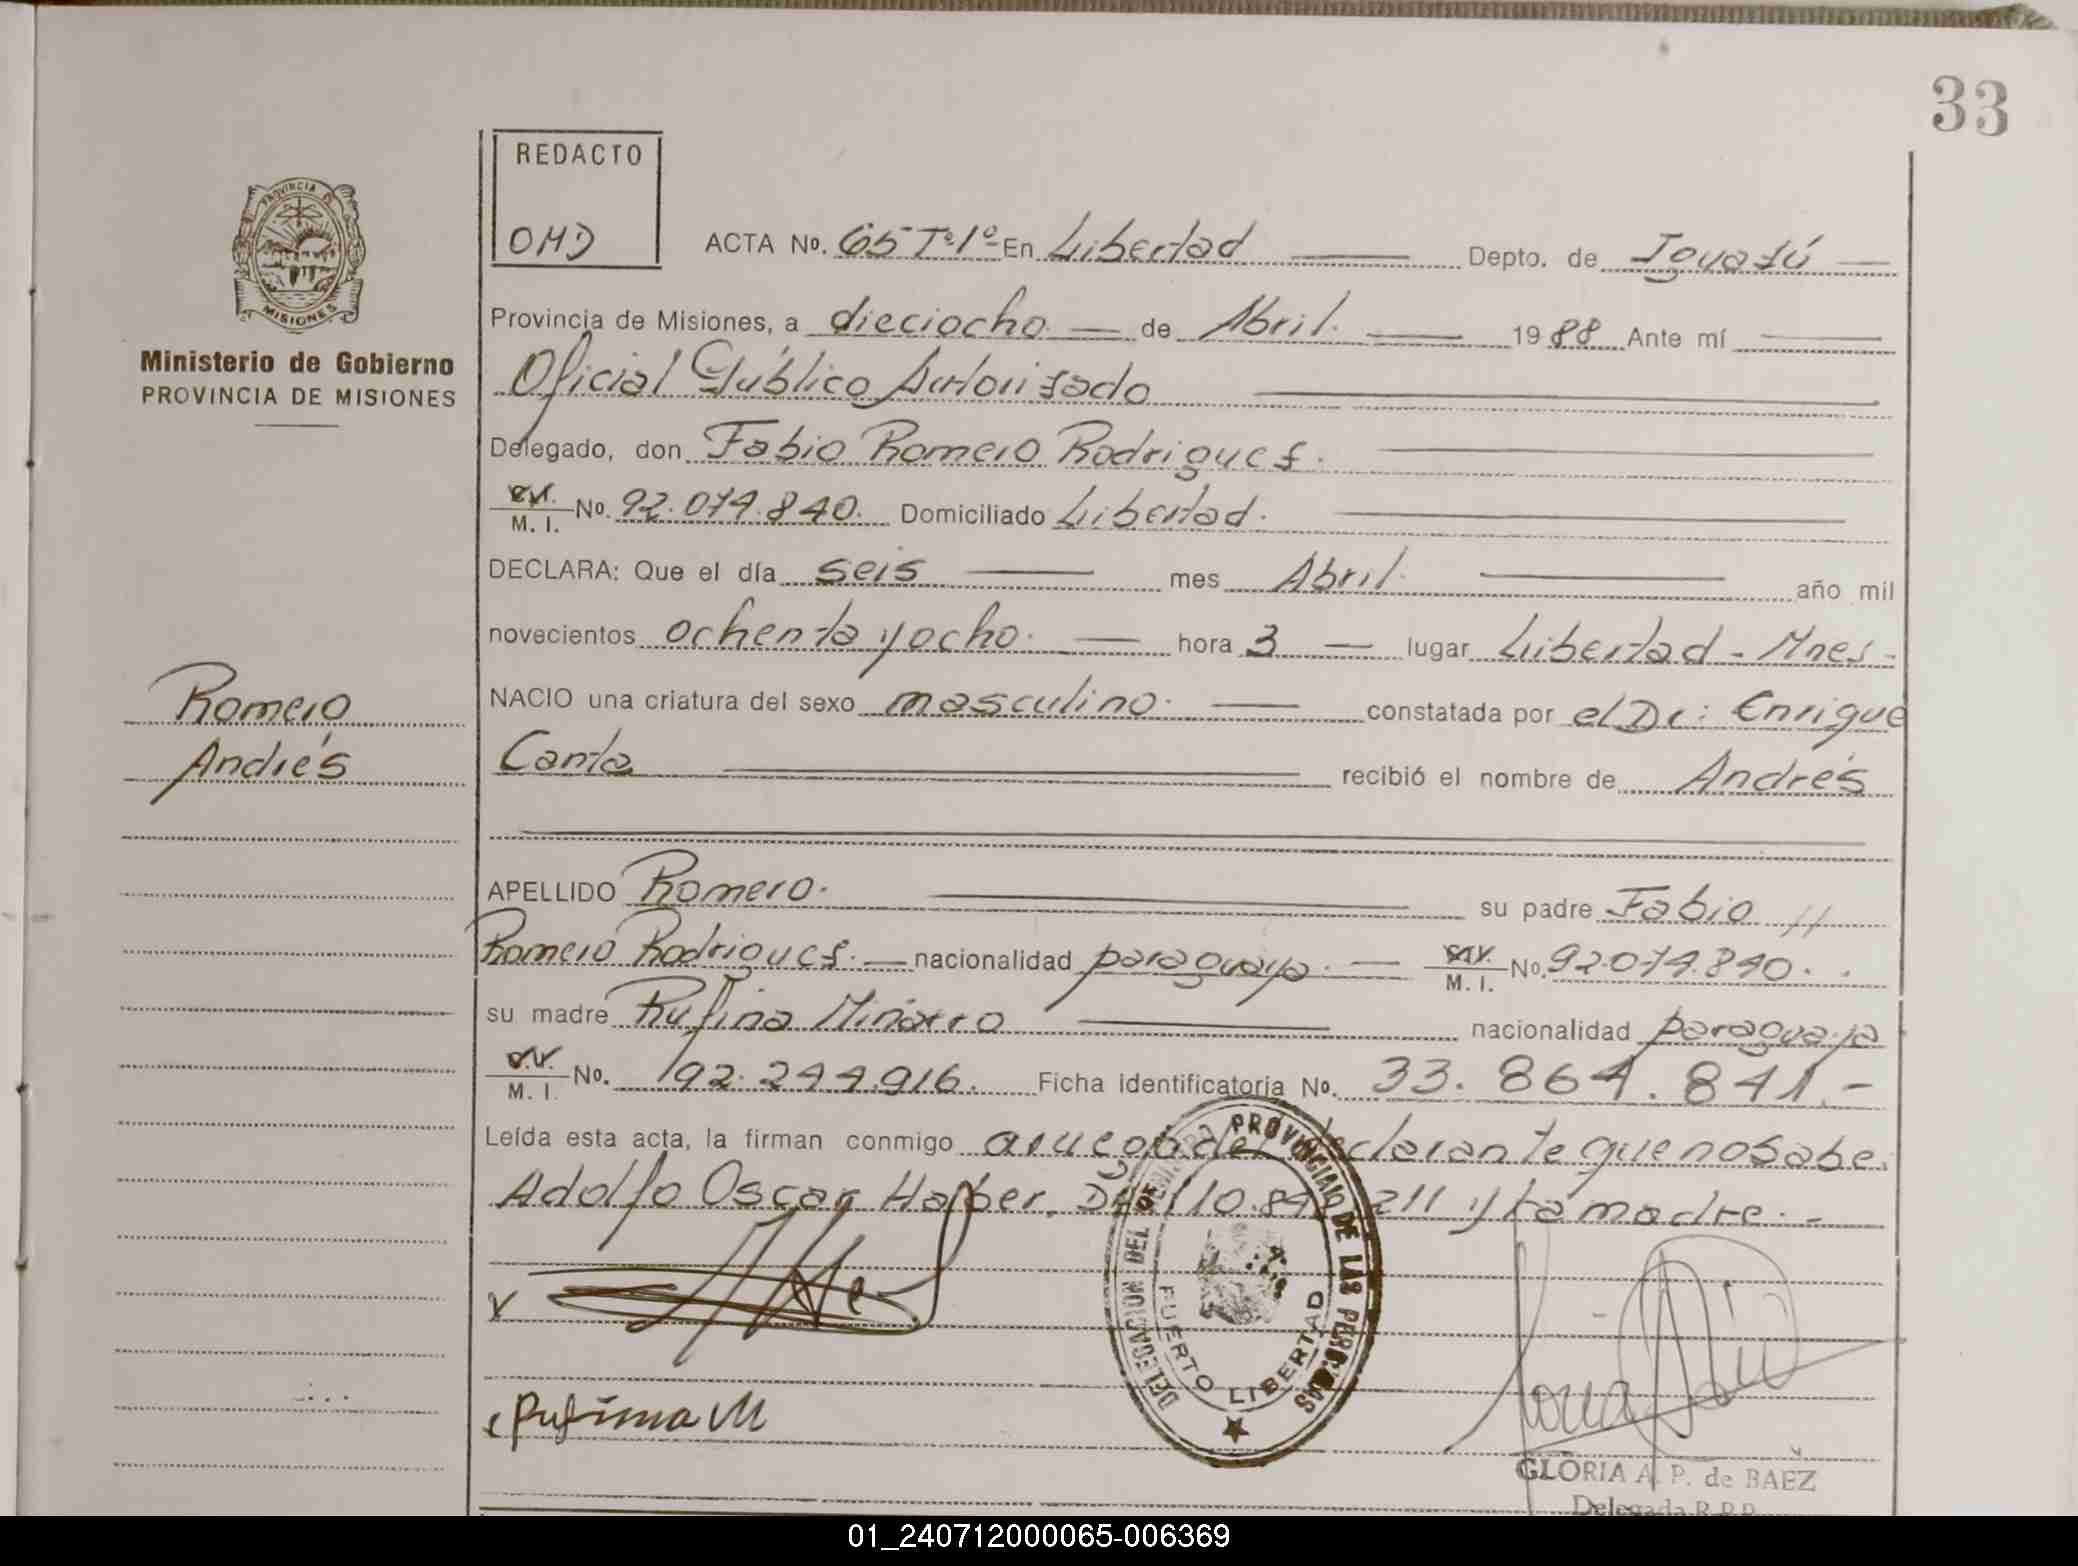 33
REDACTO
OMD
PROVINCIA DE
MISIONES
Ministerio de Gobierno
PROVINCIA DE MISIONES
ACTA No. 65 Tº1º En Libertad Depto. de Iguazú
Provincia de Misiones, a dieciocho de Abril. 1988 Ante mí
Oficial Público Autorizado
Delegado, don Fabio Romero Rodriguez.
M. I. No. 92.074.840. Domiciliado Libertad.
DECLARA: Que el día seis mes Abril. año mil
novecientos ochenta y ocho. hora 3 lugar Libertad - Mnes -
NACIO una criatura del sexo masculino. constatada por el Dr: Enrique
Canta recibió el nombre de Andrés
Romero
Andrés
APELLIDO Romero. su padre Fabio //
Romero Rodriguez. nacionalidad paraguaya. M. I. No. 92.074.840.
su madre Rufina Miñarro nacionalidad paraguaya
M. I. No. 92.244.916. Ficha identificatoria No. 33.864.841.-
Leída esta acta, la firman conmigo a ruego del declarante que no sabe.
Adolfo Oscar Halber. 10.84 211 y la madre. -
DELEGACION DEL PROVINCIAL DE LAS PERSONAS
PUERTO LIBERTAD
Rufina M
GLORIA A. P. de BAEZ
Delegada R.P.P.
01_240712000065-006369